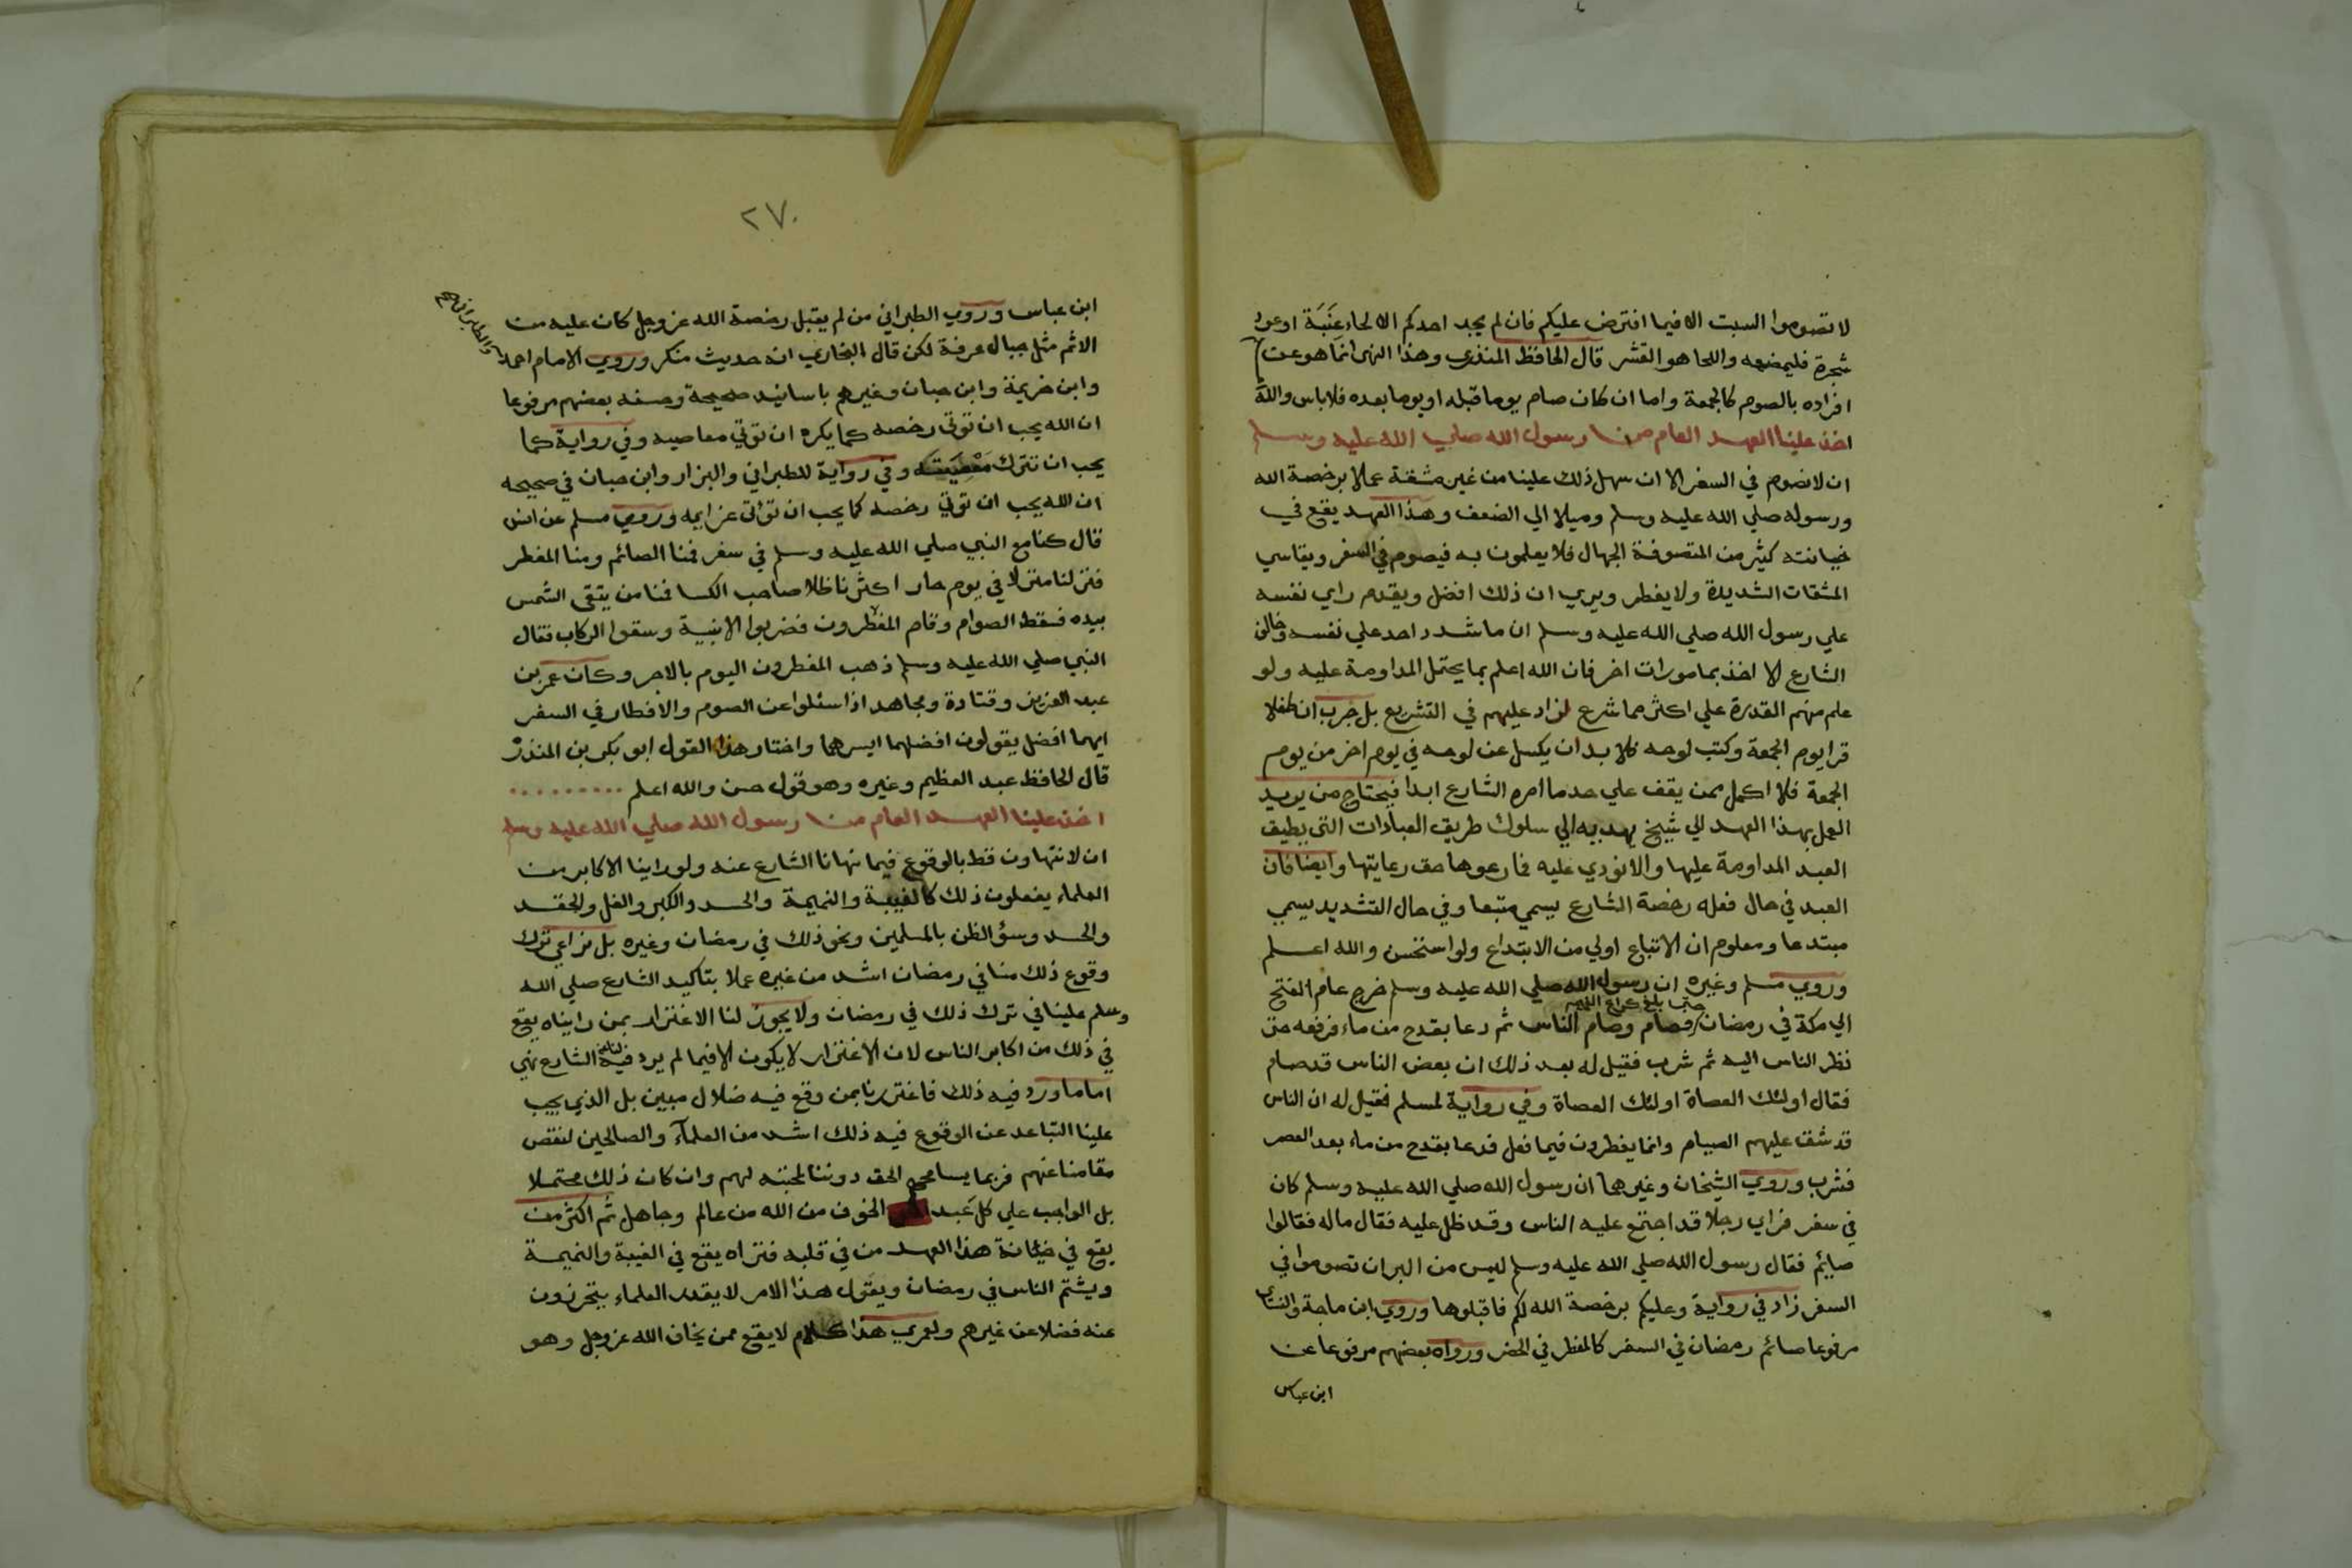 لا تصوموا السبت الا فيما افترض عليكم فان لم يجد احدكم الا لحاء عنبة او عود
شجرة فليمضغه واللحا هو القشر قال الحافظ المنذري وهذا النهى انما هو عن
افراده بالصوم كالجمعة واما ان كان صام يوما قبله او يوما بعده فلا باس والله
اخذ علينا العهد العام من رسول الله صلي الله عليه وسلم
ان لا نصوم في السفر الا ان سهل ذلك علينا من غير مشقة عملا برخصة الله
ورسوله صلي الله عليه وسلم وميلا الي الضعف وهذا العهد يقع في
خيانته كثير من المتصوفة الجهال فلا يعلمون به فيصوم في السفر ويقاسي
المشقات الشديدة ولا يفطر ويري ان ذلك افضل ويقدم راي نفسه
علي رسول الله صلي الله عليه وسلم ان ما شدد احد علي نفسه وخالف
الشارع الا اخذ بمامورات اخر فان الله اعلم بما يحتمل المداومة عليه ولو
علم منهم القدرة علي اكثر مما شرع لزاد عليهم في التشريع بل جرب ان طفلا
قرا يوم الجمعة وكتب لوحه فلا بد ان يكسل عن لوحه في يوم اخر من يوم
الجمعة فلا اكمل ممن يقف علي حد ما امره الشارع ابدا فيحتاج من يريد
العمل بهذا العهد الي شيخ يهديه الي سلوك طريق العبادات التي يطيق
العبد المداومة عليها والا نودي عليه فما رعوها حق رعايتها وايضا فان
العبد في حال فعله رخصة الشارع يسمي متبعا وفي حال التشديد يسمي
مبتدعا ومعلوم ان الاتباع اولي من الابتداع ولو استحسن والله اعلم
وروي مسلم وغيره ان رسول الله صلي الله عليه وسلم خرج عام الفتح
الي مكة في رمضان حتى بلغ كراع الغميم فصام وصام الناس ثم دعا بقدح من ماء فرفعه حتى
نظر الناس اليه ثم شرب فقيل له بعد ذلك ان بعض الناس قد صام
فقال اولئك العصاة اولئك العصاة وفي رواية لمسلم فقيل له ان الناس
قد شق عليهم الصيام وانما يفطرون فيما فعل فدعا بقدح من ماء بعد العصر
فشرب وروي الشيخان وغيرهما ان رسول الله صلي الله عليه وسلم كان
في سفر فراي رجلا قد اجتمع عليه الناس وقد ظلل عليه فقال ماله فقالوا
صايم فقال رسول الله صلي الله عليه وسلم ليس من البر ان تصوموا في
السفر زاد في رواية وعليكم برخصة الله لكم فاقبلوها وروي ابن ماجة والنساي
مرفوعا صائم رمضان في السفر كالمفطر في الحضر ورواه بعضهم مرفوعا عن
ابن عباس
٢٧٠
ابن عباس وروي الطبراني من لم يقبل رخصة الله عز وجل كان عليه من
الاثم مثل جبال عرفة لكن قال البخاري انه حديث منكر وروي الامام احمد
والطبراني
وابن خزيمة وابن حبان وغيرهم باسانيد صحيحة وصفه بعضهم مرفوعا
ان الله يحب ان توتي رخصه كما يكره ان توتي معاصيه وفي رواية كما
يحب ان تترك معصيته وفي رواية للطبراني والبزار وابن حبان في صحيحه
ان الله يحب ان توتي رخصه كما يحب ان تؤتى عزايمه وروي مسلم عن انس
قال كنا مع النبي صلي الله عليه وسلم في سفر فمنا الصائم ومنا المفطر
فنزلنا منزلا في يوم حار اكثرنا ظلا صاحب الكسا فمنا من يتقي الشمس
بيده فسقط الصوام وقام المفطرون فضربوا الابنية وسقوا الركاب فقال
النبي صلي الله عليه وسلم ذهب المفطرون اليوم بالاجر وكان عمر بن
عبد العزيز وقتادة ومجاهد اذا سئلوا عن الصوم والافطار في السفر
ايهما افضل يقولون افضلهما ايسرهما واختار هذا القول ابو بكر بن المنذر
قال الحافظ عبد العظيم وغيره وهو قول حسن والله اعلم
اخذ علينا العهد العام من رسول الله صلي الله عليه وسلم
ان لا نتهاون قط بالوقوع فيما نهانا الشارع عنه ولو راينا الاكابر من
العلماء يفعلون ذلك كالغيبة والنميمة والحسد والكبر والغل والحقد
والحسد وسؤ الظن بالمسلمين ونحو ذلك في رمضان وغيره بل نراعي ترك
وقوع ذلك منا في رمضان اشد من غيره عملا بتاكيد الشارع صلي الله
وسلم علينا في ترك ذلك في رمضان ولا يجوز لنا الاغترار بمن رايناه يقع
في ذلك من اكابر الناس لان الاغترار لا يكون الا فيما لم يرد فيه الشارع نهي
اما ما ورد فيه ذلك فاغترارنا بمن وقع فيه ضلال مبين بل الذي يجب
علينا التباعد عن الوقوع فيه ذلك اشد من العلمآء والصالحين لنقص
مقامنا عنهم فربما يسامحهم الحق دوننا لمحبته لهم وان كان ذلك محتملا
بل الواجب علي كل عبد الخوف من الله من عالم وجاهل ثم اكثر من
يقع في خيانة هذا العهد من في قلبه فتراه يقع في الغيبة والنميمة
ويشتم الناس في رمضان ويقول هذا الامر لا يقدر العلماء يتحرزون
عنه فضلا عن غيرهم ولعمري هذا كلام لا يقع ممن يخاف الله عز وجل وهو